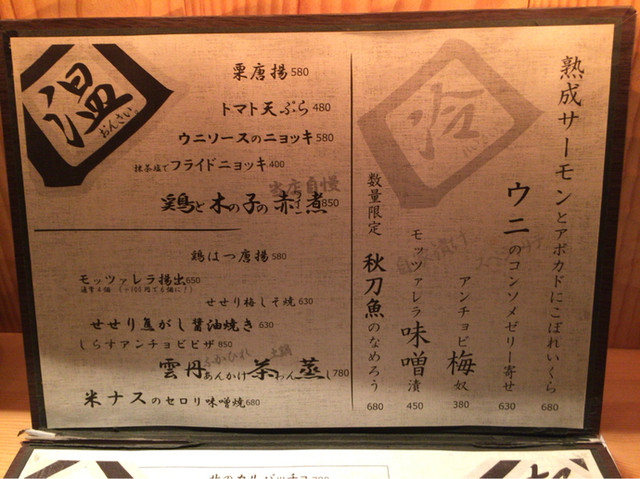 温
おんさい
栗唐揚580
トマト天ぷら480
ウニソースのニョッキ580
抹茶塩でフライドニョッキ400
当店自慢
鶏と木の子の赤ワイン煮850
鶏はつ唐揚580
モッツァレラ揚出650
せせり梅しそ焼630
せせり焦がし醤油焼き630
しらすアンチョビピザ850
ふかひれ 土鍋
雲丹あんかけ茶わん蒸し780
米ナスのセロリ味噌焼680
冷
熟成サーモンとアボカドにこぼれいくら 680
ウニのコンソメゼリー寄せ 630
アンチョビ梅奴 380
自家漬け
モッツァレラ味噌漬 450
数量限定 秋刀魚のなめろう 680